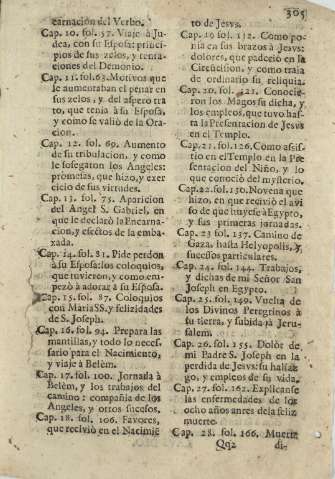 305
carnacion del Verbo.
Cap. 10. fol. 57. Viaje à Ju-
dea, con su Esposa: princi-
pios de sus zelos, y tenta-
ciones del Demonio.
Cap. 11. fol. 63. Motivos que
le aumentaban el penar en
sus zelos, y del aspero tra
to, que tenia à su Esposa,
y como se valiò de la Ora-
cion.
Cap. 12. fol. 69. Aumento
de su tribulacion, y como
le sosegaton los Angeles:
promesas, que hizo, y exer
cicio de sus virtudes.
Cap. 13. fol. 75. Aparicion
del Angel S. Gabriel, en
que le declarò la Encarna-
cion, y efectos de la emba-
xada.
Cap. 14. fol. 81. Pide perdon
à su Esposa: los coloquios,
que tuvieron, y como em-
pezò à adorar à su Esposa.
Cap. 15. fol. 87. Coloquios
con Maria SS. y felizidades
de S. Joseph.
Cap. 16. fol. 94. Prepara las
mantillas, y todo lo neces-
sario para el Nacimiento,
y viaje à Belèm.
Cap. 17. fol. 100. Jornada à
Belèm, y los trabajos del
camino: compañia de los
Angeles, y otros sucesos.
Cap. 18. fol. 106. Favores,
que recivió en el Nacimiē
to de Jesvs.
Cap. 19 fol. 112. Como po-
nia en sus brazos à Jesvs:
dolores, que padeciò en la
Circūcision, y como traìa
de ordinario su reliquia.
Cap. 20. fol. 121. Conocie-
ron los Magos su dicha, y
los empleos, que tuvo has-
ta la Presentacion de Jesus
en el Templo.
Cap. 21. fol. 126. Como assis-
tio en el Templo en la Pre
sentacion del Niño, y lo
que conoció del mysterio.
Cap. 22. fol. 150. Novena que
hizo, en que recivió el avi
so de que huyese à Egypto,
y sus primeras jornadas.
Cap. 23 fol. 137. Camino de
Gaza, hasta Helyopolis, y
sucesos particulares.
Cap. 24. fol. 144. Trabajos,
y dichas de mi Señor San
Joseph en Egypto.
Cap. 25. fol. 149. Vuelta de
los Divinos Peregrinos à
su tierra, y subida à Jeru-
salem.
Cap. 26. fol. 155. Dolòr de
mi Padre S. Joseph en la
perdida de Jesvs: su hallaz
go, y empleos de su vida.
Cap. 27. fol. 162. Explicanse
las enfermedades de los
ocho años antes de la feliz
muerte.
Cap. 28. fol. 166. Muerte
Qq2 di-